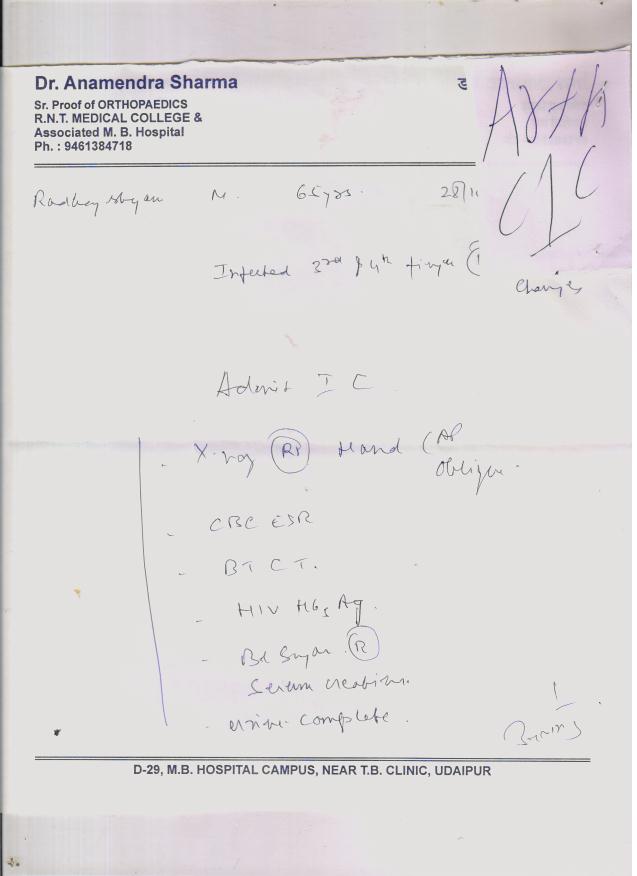 Dr. Anamendra Sharma
Sr. Proof of ORTHOPAEDICS
R.N.T. MEDICAL COLLEGE &
Associated M. B. Hospital
Ph. : 9461384718
M. 65yrs. 28/11
Infected 3rd & 4th finger
Changes
Admit I C
X-ray Rt Hand (AP
Oblique
CBC ESR
BT CT.
HIV HBsAg.
Bd Sugar (R)
Serum creatinine
urine complete.
D-29, M.B. HOSPITAL CAMPUS, NEAR T.B. CLINIC, UDAIPUR